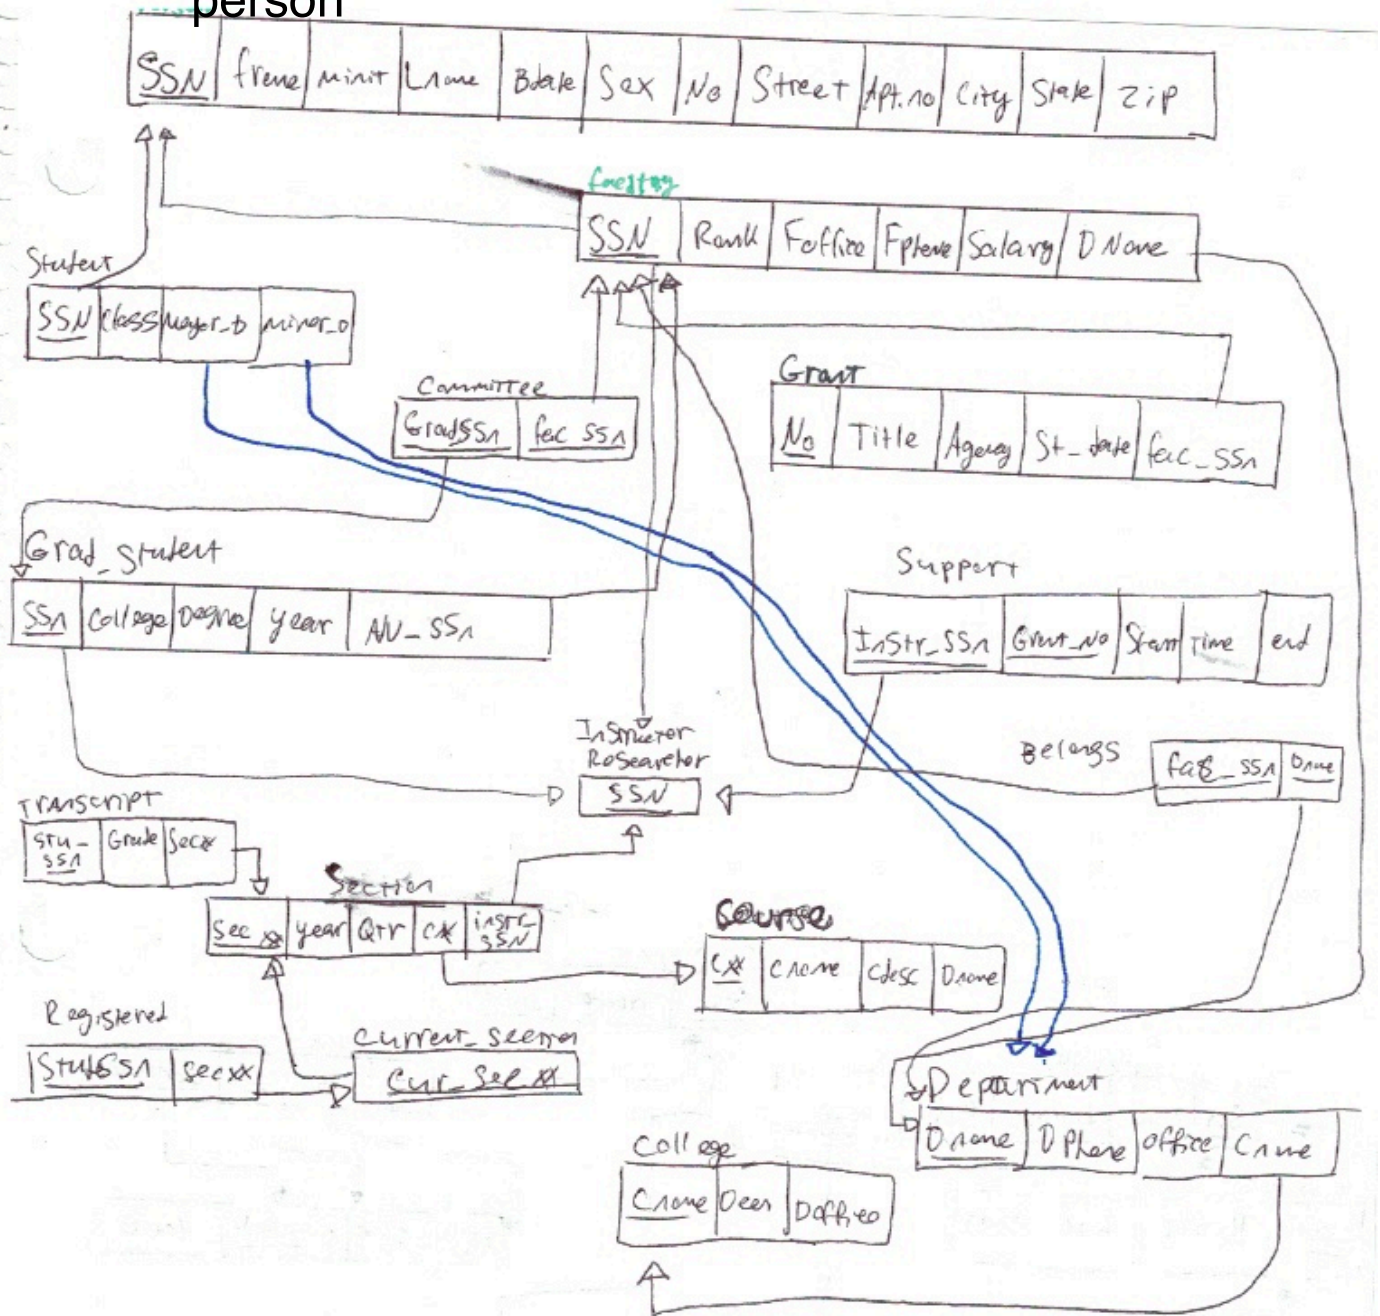 person
SSN fname minit Lname Bdate Sex No Street Apt.no City State Zip
faculty
SSN Rank Foffice Fphone Salary DName
Student
SSN Class Major_D minor_D
Grant
No Title Agency St_date fac_SSn
Committee
GradSSn fac SSn
Grad_Student
SSn College Degree year Adv_SSn
Support
InStr_SSn Grant_No Start Time end
Instructor
Researcher
SSN
Belongs
fac_SSn Dname
Transcript
Stu_SSn Grade Sec#
Section
Sec # year Qtr C# instr_SSN
Course
C# Cname Cdesc Dname
Registered
StudSSn sec#
Current_Section
Cur_Sec #
Department
Dname DPhone office Cname
College
Cname Dean Doffice